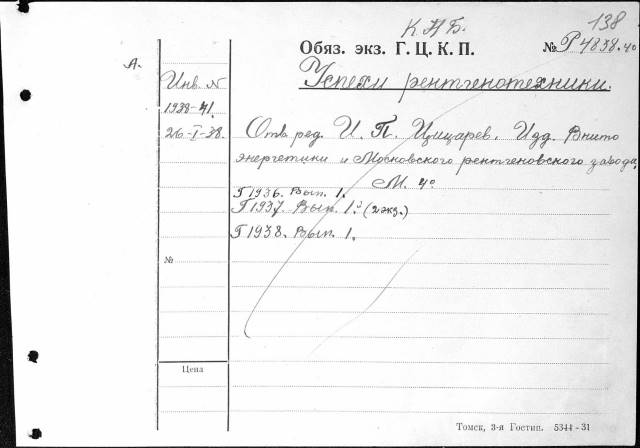 К. Н. Б.
138
Обяз. экз. Г. Ц. К. П.
№ Р 4838. 4°
А.
Успехи рентгенотехники.
Инв. N
1938-41.
26-I-38.
Отв. ред. И. П. Цицарев. Изд. Внито
энергетики и Московского рентгеновского завода.
М. 4°
Г 1936. Вып. 1.
Г 1937. Вып. 1. (2 экз.)
Г 1938. Вып. 1.
№
Цена
Томск, 3-я Гостип. 5344 - 31